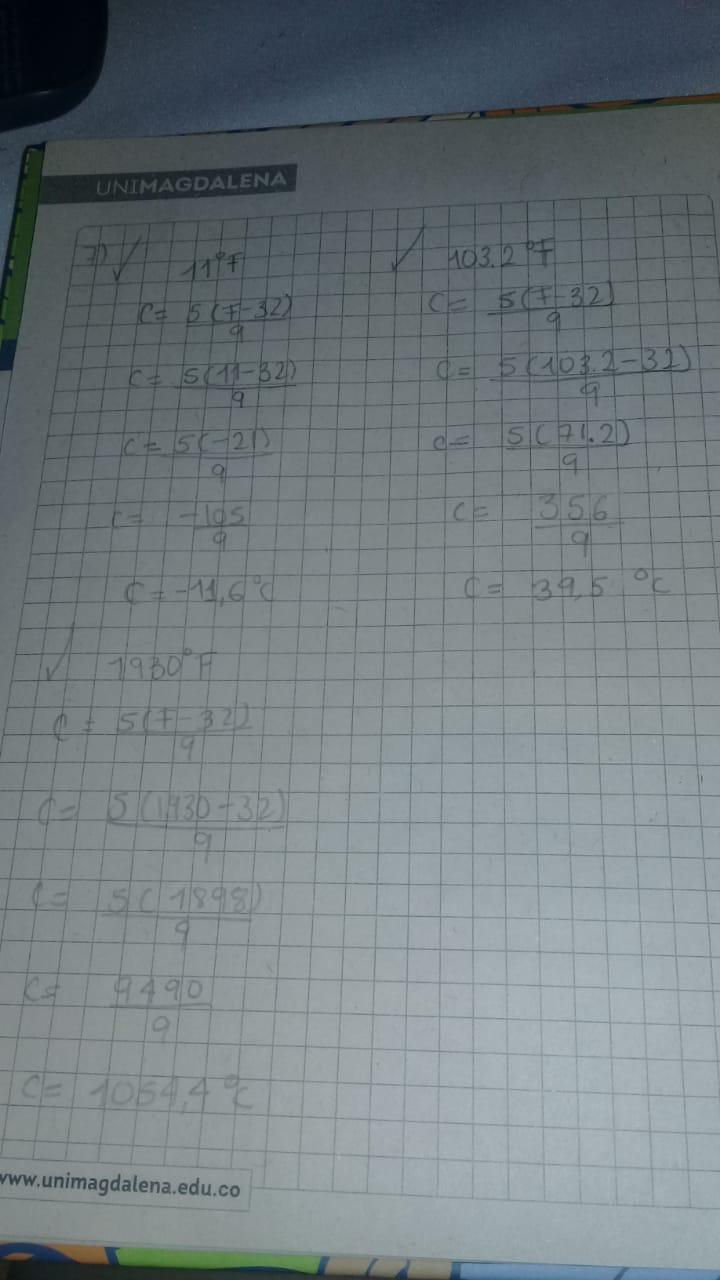 UNIMAGDALENA
7) ✓ 11°F
C= 5(F-32)/9
C= 5(11-32)/9
C= 5(-21)/9
C= -105/9
C= -11,6°C
✓ 103.2°F
C= 5(F-32)/9
C= 5(103.2-32)/9
C= 5(71.2)/9
C= 356/9
C= 39,5 °C
✓ 1930°F
C= 5(F-32)/9
C= 5(1930-32)/9
C= 5(1898)/9
C= 9490/9
C= 1054,4°C
www.unimagdalena.edu.co